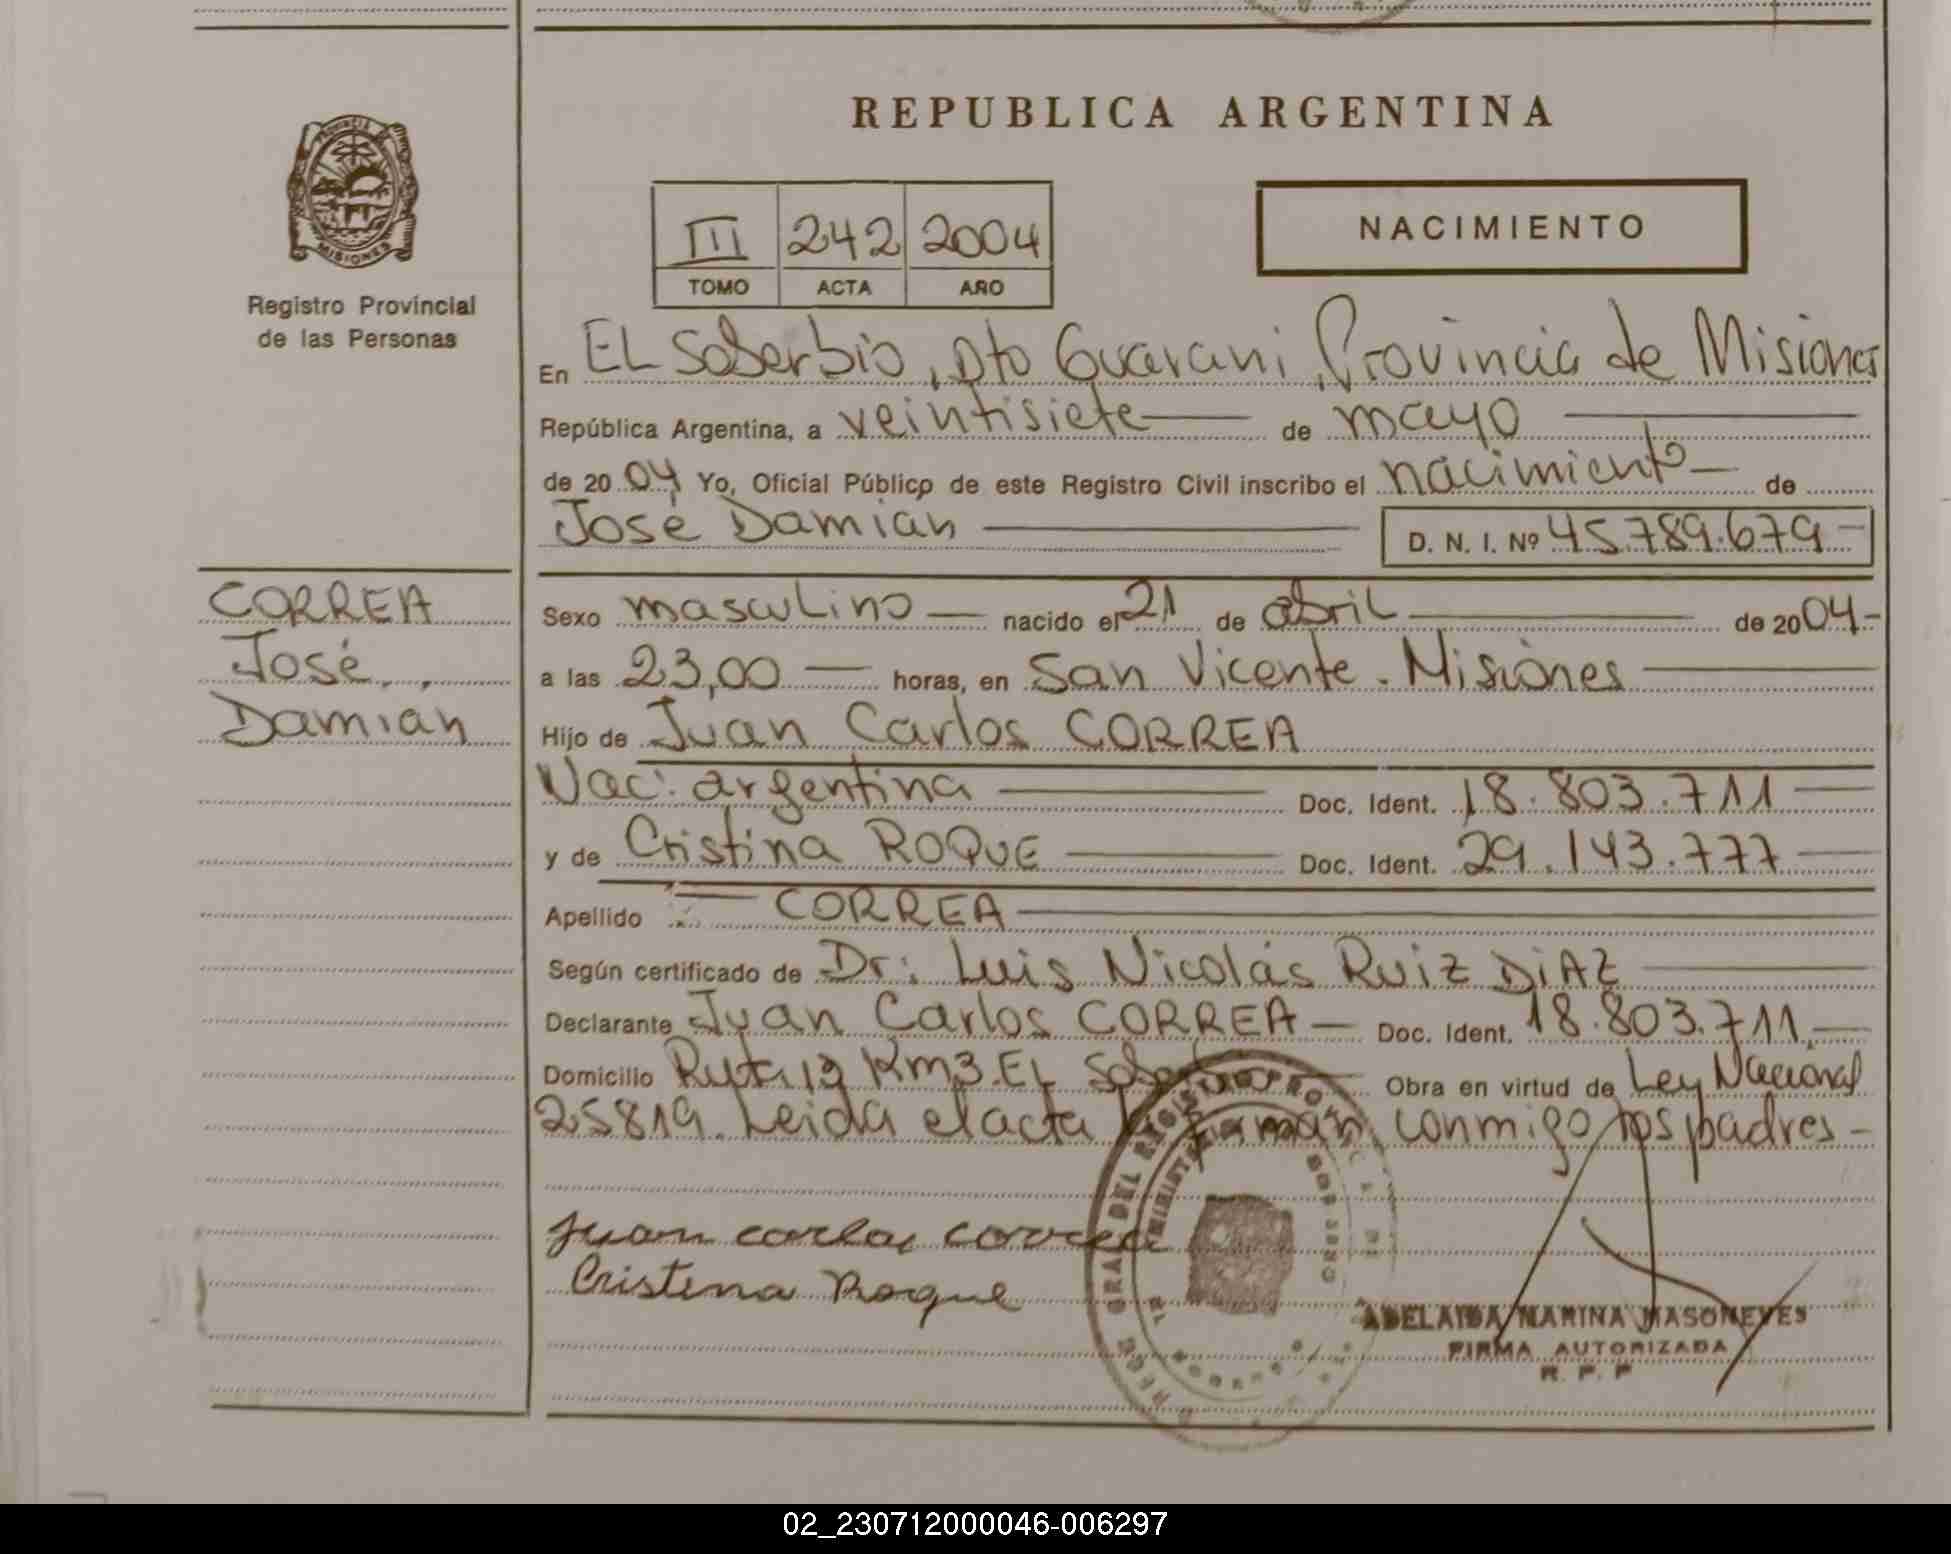 REPUBLICA ARGENTINA
PROVINCIA DE
MISIONES
Registro Provincial
de las Personas
III 242 2004
TOMO ACTA AÑO
NACIMIENTO
En EL Soberbio, Dto Guarani, Provincia de Misiones
República Argentina, a veintisiete de mayo
de 2004 Yo, Oficial Público de este Registro Civil inscribo el nacimiento de
José Damian D. N. I. Nº 45.789.679
CORREA
José,
Damian
Sexo masculino nacido el 21 de abril de 2004
a las 23,00 horas, en San Vicente. Misiones
Hijo de Juan Carlos CORREA
Nac: argentina Doc. Ident. 18.803.711
y de Cristina ROQUE Doc. Ident. 29.143.777
Apellido CORREA
Según certificado de Dr: Luis Nicolás Ruiz DIAZ
Declarante Juan Carlos CORREA Doc. Ident. 18.803.711
Domicilio Ruta 13 Km3. EL Soberbio Obra en virtud de Ley Nacional
25819. Leida el acta firman conmigo los padres
Juan carlos correa
Cristina Roque
ADELAIDA MARINA MASONEVES
FIRMA AUTORIZADA
R. P. P
02_230712000046-006297